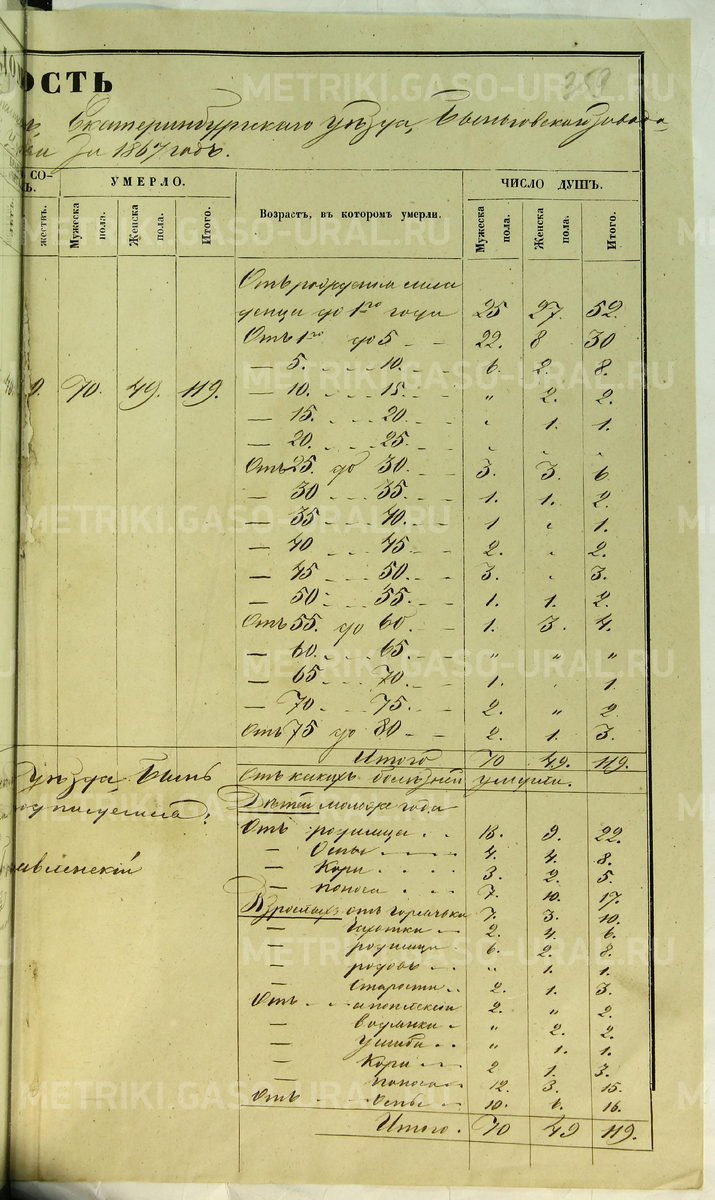 ОСТЬ
259
Екатеринбургскаго уѣзда, Быньговскаго завода
за 1867 годъ.
СО-
УМЕРЛО.
Возрастъ, въ которомъ умерли.
ЧИСЛО ДУШЪ.
жествъ.
Мужеска пола.
Женска пола.
Итого.
Мужеска пола.
Женска пола.
Итого.
Отъ рожденія мла
денцы до 1го года 25 27. 52.
Отъ 1го до 5 22. 8 30
— 5. 10. 6. 2. 8.
9. 70. 49. 119.
— 10. 15. „ 2. 2.
— 15. 20. 1. 1.
— 20. 25.
Отъ 25. до 30. 3. 3. 6.
— 30 35. 1. 1. 2.
— 35 40. 1 1.
— 40 45. 2. 2.
— 45 50. 3. 3.
— 50. 55. 1. 1. 2.
Отъ 55. до 60. 1. 3. 4.
— 60. 65. „ „ „
— 65 70. 1. 1.
— 70 75. 2. „ 2
Отъ 75 до 80 2. 1. 3.
Итого 70 49. 119.
Отъ какихъ болѣзней умерли.
уѣзда, Бынь
Дѣтей моложе года
Отъ родимца 13. 9. 22.
— Оспы 4. 4. 8.
— Кори 3. 2. 5.
— поноса 7. 10. 17.
Взрослыхъ отъ горячки 7. 3. 10.
— Чахотки 2. 4. 6.
— родимца 6. 2. 8.
— родовъ „ 1. 1.
— Старости 2. 1. 3.
Отъ апоплексіи 2. „ 2.
— водянки „ 2. 2.
— Ушиба „ 1. 1.
— Кори 2 1. 3.
— поноса 12. 3. 15.
Отъ Оспы 10. 6. 16.
Итого. 70 49 119.
METRIKI.GASO-URAL.RU